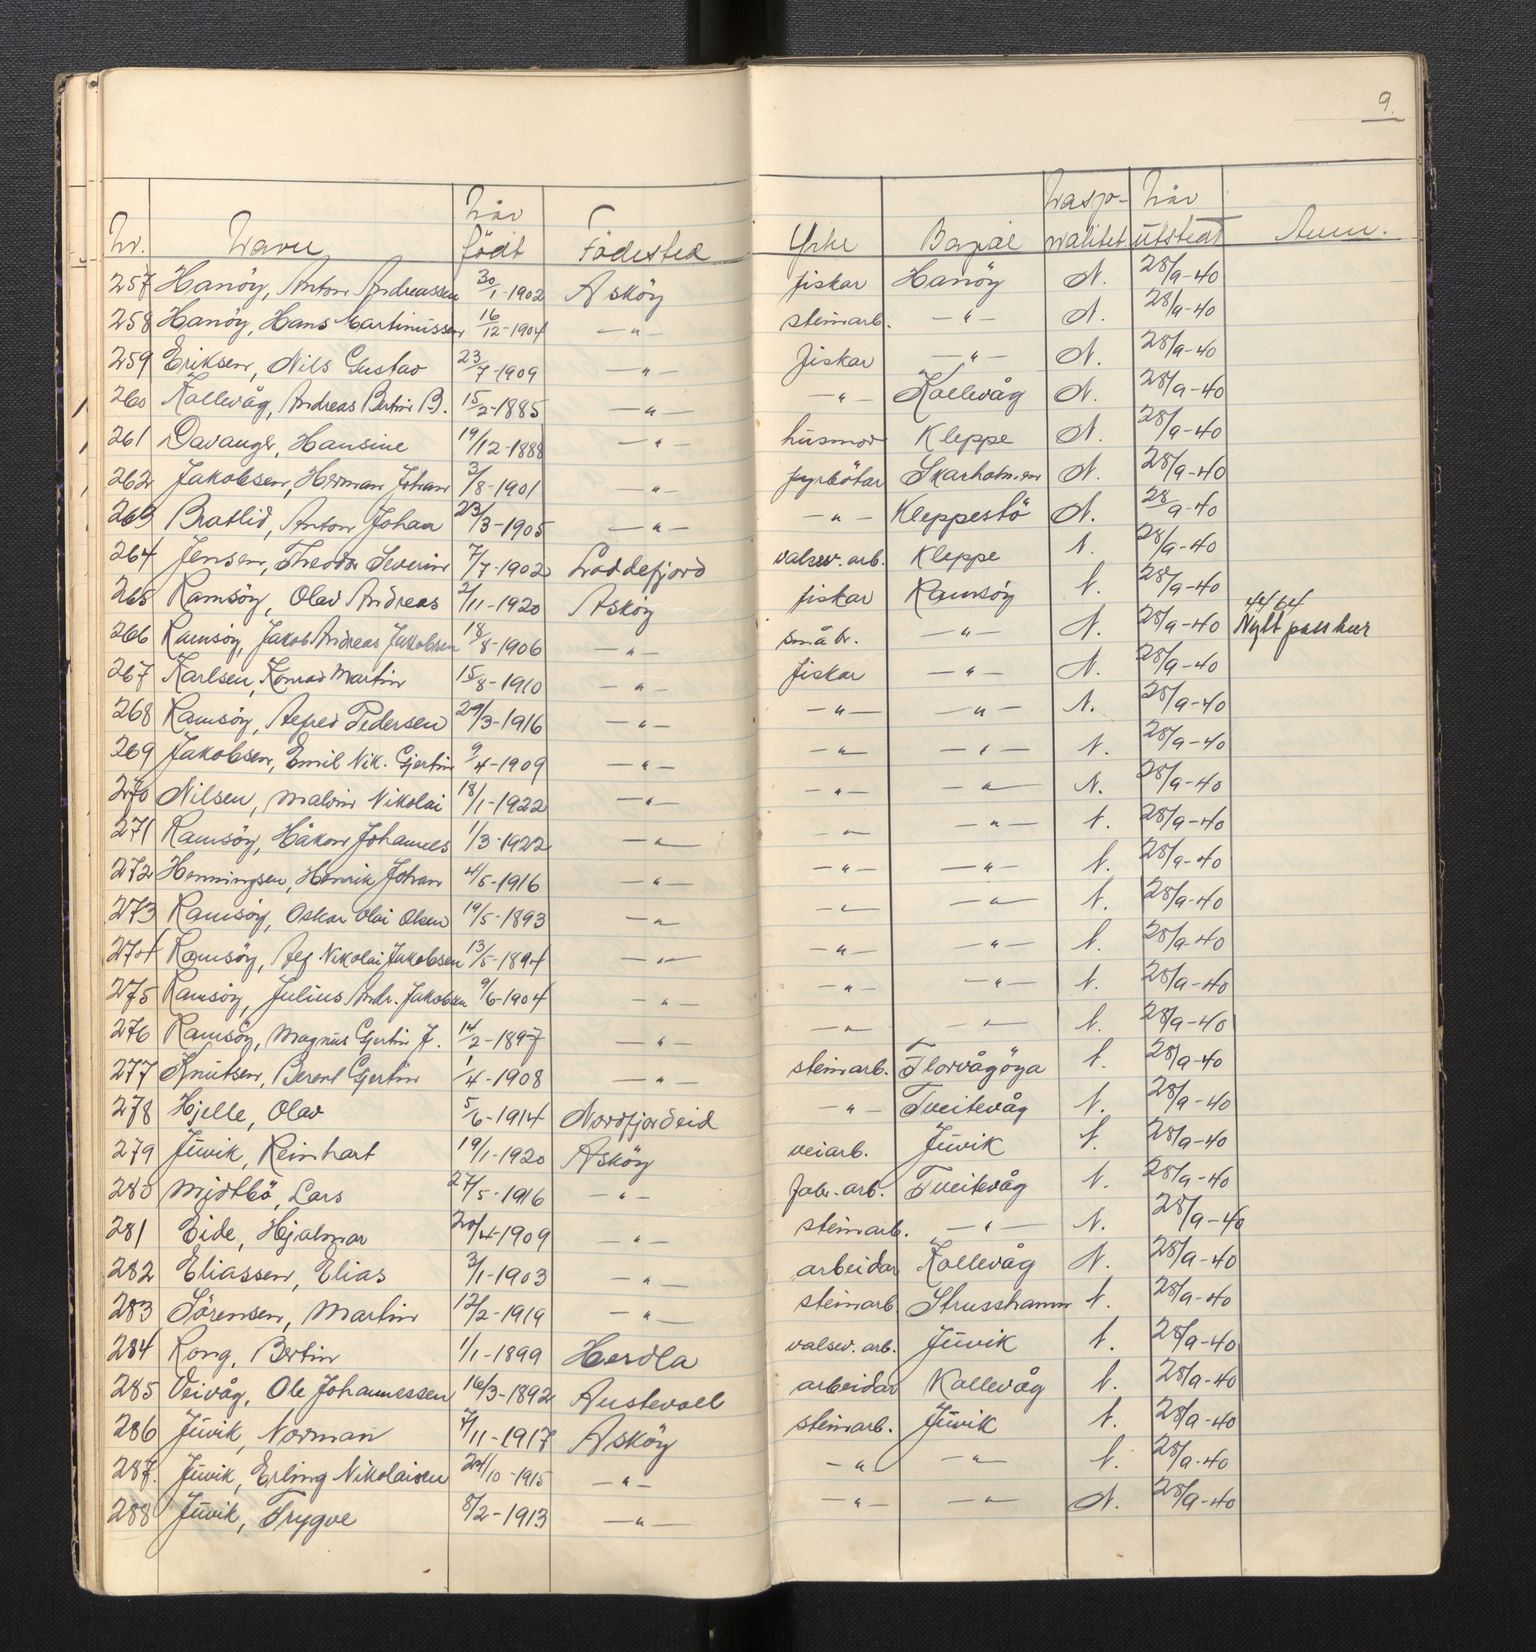 9.
Nr. Navn Når födt Födested Yrke Bopæl Nasjonalitet Når utstedt Anm.
257 Hanöy, Anton Andreassen 30/1-1902 Asköy fiskar Hanöy N. 28/9-40
258 Hanöy, Hans Martinussen 16/12-1904 —"— steinarb. —"— N. 28/9-40
259 Eriksen, Nils Gustav 23/7-1909 —"— fiskar —"— N. 28/9-40
260 Kollevåg, Andreas Bertin B. 15/2-1885 —"— —"— Kollevåg N. 28/9-40
261 Davanger, Hansine 19/12-1888 —"— husmor Kleppe N. 28/9-40
262 Jakobsen, Herman Johan 3/8-1901 —"— fyrbötar Skarholmen N. 28/9-40
263 Bratlid, Anton Johan 23/3-1905 —"— —"— Kleppestö N. 28/9-40
264 Jensen, Theodor Severin 7/7-1902 Loddefjord valsev. arb. Kleppe N. 28/9-40
265 Ramsöy, Olav Andreas 2/11-1920 Asköy fiskar Ramsöy N. 28/9-40
266 Ramsöy, Jakob Andreas Jakobsen 18/8-1906 —"— småbr. —"— N. 28/9-40 4464 Nytt pass her
267 Karlsen, Konrad Martin 15/8-1910 —"— fiskar —"— N. 28/9-40
268 Ramsöy, Alfred Pedersen 29/3-1916 —"— —"— —"— N. 28/9-40
269 Jakobsen, Emil Nik. Gjertin 9/4-1909 —"— —"— —"— N. 28/9-40
270 Nilsen, Malvin Nikolai 18/1-1922 —"— —"— —"— N. 28/9-40
271 Ramsöy, Håkon Johannes 1/3-1922 —"— —"— —"— N. 28/9-40
272 Henningsen, Henrik Johan 4/5-1916 —"— —"— —"— N. 28/9-40
273 Ramsöy, Oskar Olai Olsen 19/5-1893 —"— —"— —"— N. 28/9-40
274 Ramsöy, Alf Nikolai Jakobsen 13/5-1894 —"— —"— —"— N. 28/9-40
275 Ramsöy, Julius Andr. Jakobsen 9/6-1904 —"— —"— —"— N. 28/9-40
276 Ramsöy, Magnus Gjertin J. 14/2-1897 —"— —"— —"— N. 28/9-40
277 Knutsen, Berent Gjertin 1/4-1908 —"— steinarb. Florvågöya N. 28/9-40
278 Hjelle, Olav 5/6-1914 Nordfjordeid —"— Tveitevåg N. 28/9-40
279 Juvik, Reinhart 19/1-1920 Asköy veiarb. Juvik N. 28/9-40
280 Midtbö, Lars 27/5-1916 —"— fabr. arb. Tveitevåg N. 28/9-40
281 Eide, Hjalmar 20/4-1909 —"— steinarb. —"— N. 28/9-40
282 Eliassen, Elias 3/1-1903 —"— arbeidar Kollevåg N. 28/9-40
283 Sörensen, Martin 12/2-1919 —"— steinarb. Strusshamn N. 28/9-40
284 Rong, Bertin 1/1-1899 Herdla valsev. arb. Juvik N. 28/9-40
285 Veivåg, Ole Johannessen 16/3-1892 Austevoll arbeidar Kollevåg N. 28/9-40
286 Juvik, Norman 7/11-1917 Asköy steinarb. Juvik N. 28/9-40
287. Juvik, Erling Nikolaisen 24/10-1915 —"— —"— —"— N. 28/9-40
288 Juvik, Trygve 8/2-1913 —"— —"— —"— N. 28/9-40